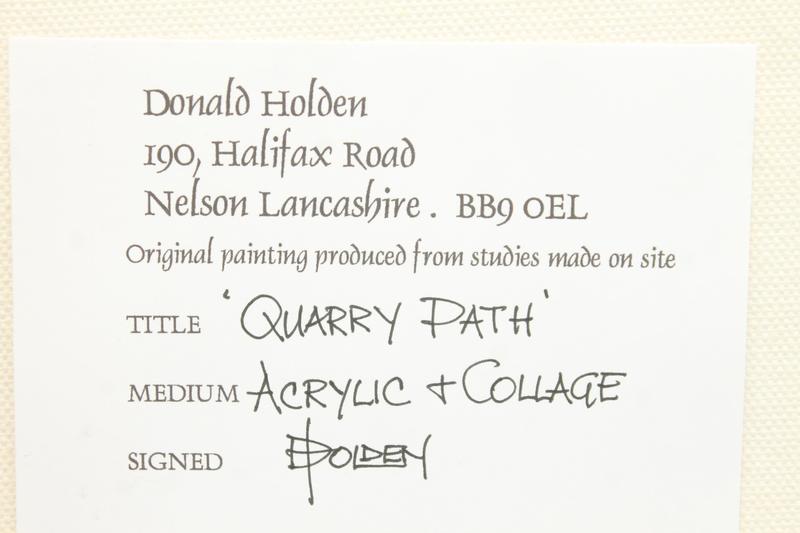 Donald Holden
190, Halifax Road
Nelson Lancashire. BB9 0EL
Original painting produced from studies made on site
TITLE 'QUARRY PATH'
MEDIUM ACRYLIC + COLLAGE
SIGNED DHOLDEN